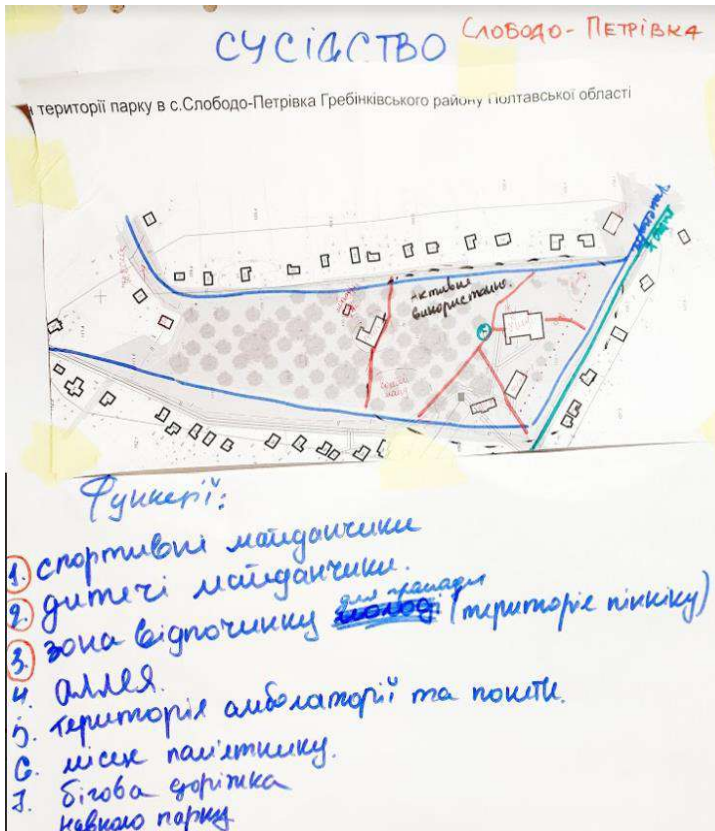 СУСІДСТВО
СЛОБОДО-ПЕТРІВКА
території парку в с.Слободо-Петрівка Гребінківського району Полтавської області
Активне
використанн.
Функції:
1. спортивні майданчики
2. дитячі майданчики.
для громади
3. зона відпочинку (територія пікніку)
4. аллея.
5. територія амболаторії та пошти.
6. місце пам'ятнику.
7. бігова доріжка
навколо парку